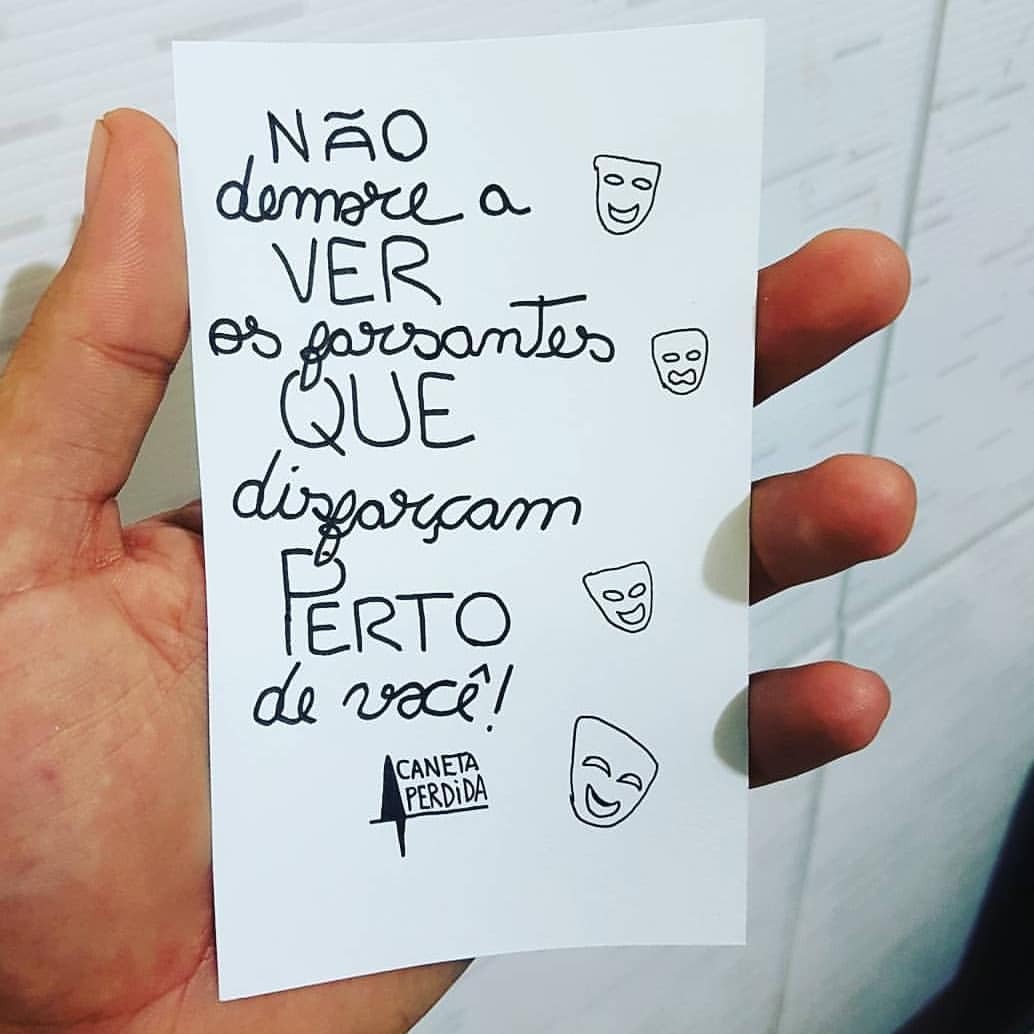 NÃO
demore a
VER
os farsantes
QUE
disfarçam
PERTO
de você!
CANETA
PERDiDA